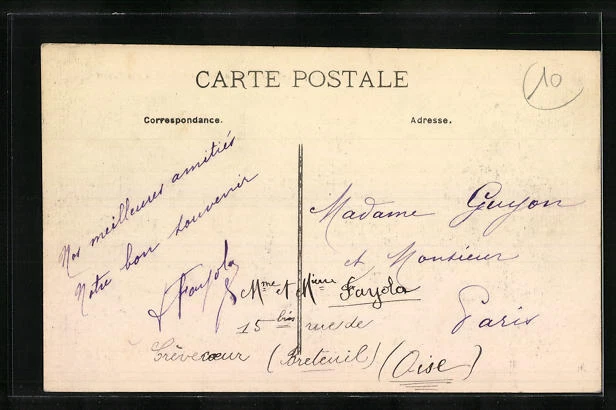 CARTE POSTALE
10
Correspondance.
Adresse.
Nos meilleures amitiés
Notre bon souvenir
Fayola
Madame Guyon
et Monsieur
Paris
Mme et Fayola
15 bis rue de
Crèvecœur (Breteuil) (Oise)